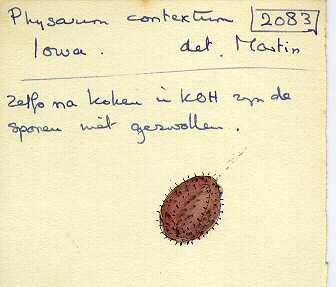 Physarum contextum 2083
Iowa. det. Martin
Zelfs na koken in KOH zijn de
sporen niet gezwollen.